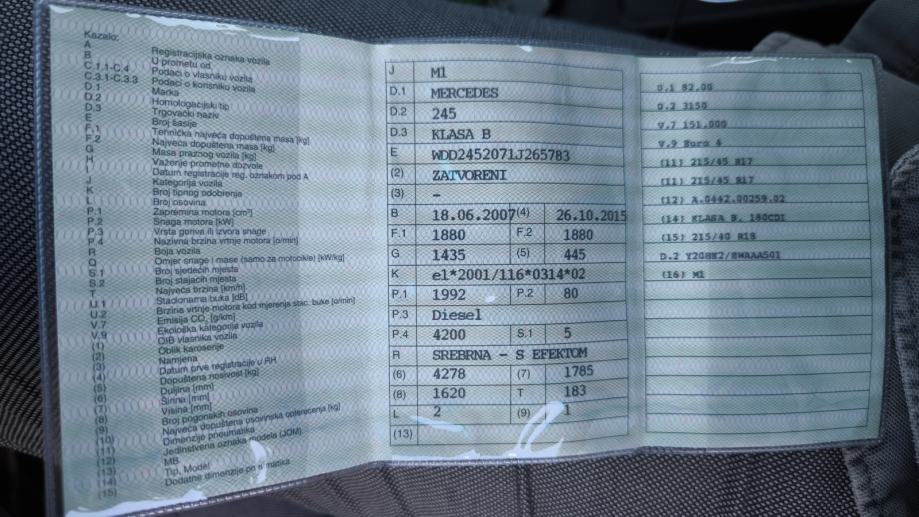 Kazalo:
A Registracijska oznaka vozila
B U prometu od
C.1.1-C.4 Podaci o vlasniku vozila
C.3.1-C.3.3 Podaci o korisniku vozila
D.1 Marka
D.2 Homologacijski tip
D.3 Trgovački naziv
E Broj šasije
F.1 Tehnička najveća dopuštena masa [kg]
F.2 Najveća dopuštena masa [kg]
G Masa praznog vozila [kg]
H Važenje prometne dozvole
I Datum registracije reg. oznakom pod A
J Kategorija vozila
K Broj tipnog odobrenje
L Broj osovina
P.1 Zapremina motora [cm³]
P.2 Snaga motora [kW]
P.3 Vrsta goriva ili izvora snage
P.4 Nazivna brzina vrtnje motora [o/min]
R Boja vozila
Q Omjer snage i mase (samo za motocikle) [kW/kg]
S.1 Broj sjedećih mjesta
S.2 Broj stajaćih mjesta
T Najveća brzina [km/h]
U.1 Stacionarna buka [dB]
U.2 Brzina vrtnje motora kod mjerenja stac. buke [o/min]
V.7 Emisija CO₂ [g/km]
V.9 Ekološka kategorija vozila
(1) OIB vlasnika vozila
(2) Oblik karoserije
(3) Namjena
(4) Datum prve registracije u RH
(5) Dopuštena nosivost [kg]
(6) Duljina [mm]
(7) Širina [mm]
(8) Visina [mm]
(9) Broj pogonskih osovina
(10) Najveća dopuštena osovinska opterećenja [kg]
(11) Dimenzije pneumatika
(12) Jedinstvena oznaka modela (JOM)
(13) MB
(14) Tip, Model
(15) Dodatne dimenzije
J M1
D.1 MERCEDES
D.2 245
D.3 KLASA B
E WDD2452071J265783
(2) ZATVORENI
(3) –
B 18.06.2007 (4) 26.10.2015
F.1 1880 F.2 1880
G 1435 (5) 445
K e1*2001/116*0314*02
P.1 1992 P.2 80
P.3 Diesel
P.4 4200 S.1 5
R SREBRNA – S EFEKTOM
(6) 4278 (7) 1785
(8) 1620 T 183
L 2 (9) 1
(13)
U.1 82.00
U.2 3150
V.7 151.000
V.9 Euro 4
(11) 215/45 R17
(11) 215/45 R17
(12) A.0442.00259.02
(14) KLASA B, 180CDI
(15) 215/40 R18
(16) M1